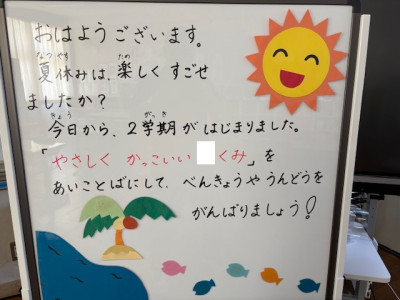 おはようございます。
夏休みは、楽しくすごせ
ましたか?
今日から、2学期がはじまりました。
「やさしく かっこいい くみ」を
あいことばにして、べんきょうやうんどうを
がんばりましょう!